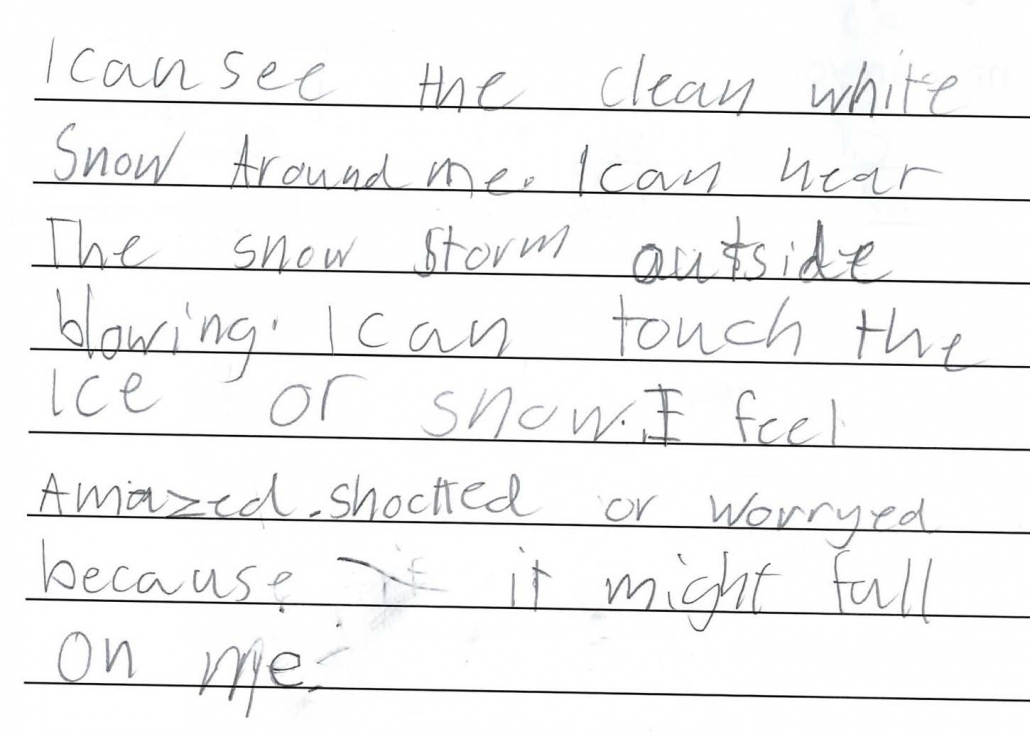 I can see the clean white
Snow Around me. I can hear
The snow storm outside
blowing. I can touch the
Ice or snow. I feel
Amazed. shocked or worryed
because it might fall
On me.